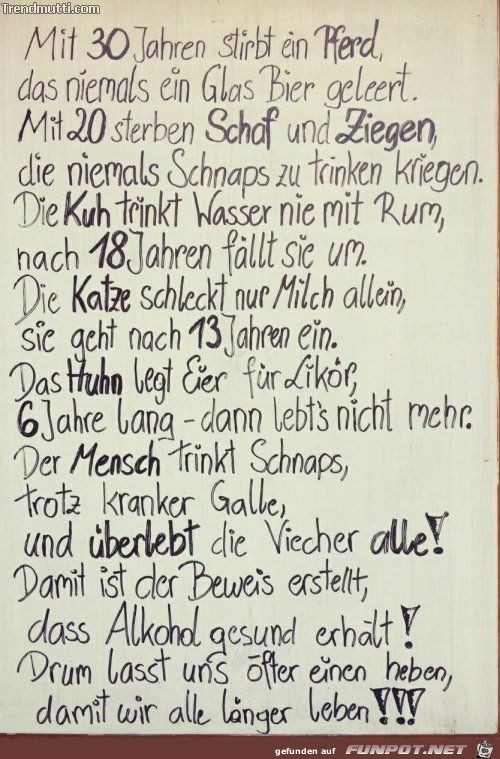 Trendmutti.com
Mit 30 Jahren stirbt ein Pferd,
das niemals ein Glas Bier geleert.
Mit 20 sterben Schaf und Ziegen,
die niemals Schnaps zu trinken kriegen.
Die Kuh trinkt Wasser nie mit Rum,
nach 18 Jahren fällt sie um.
Die Katze schleckt nur Milch allein,
sie geht nach 13 Jahren ein.
Das Huhn legt Eier für Likör,
6 Jahre lang - dann lebt's nicht mehr.
Der Mensch trinkt Schnaps,
trotz kranker Galle,
und überlebt die Viecher alle!
Damit ist der Beweis erstellt,
dass Alkohol gesund erhält!
Drum lasst uns öfter einen heben,
damit wir alle länger leben!!!
gefunden auf FUNPOT.NET